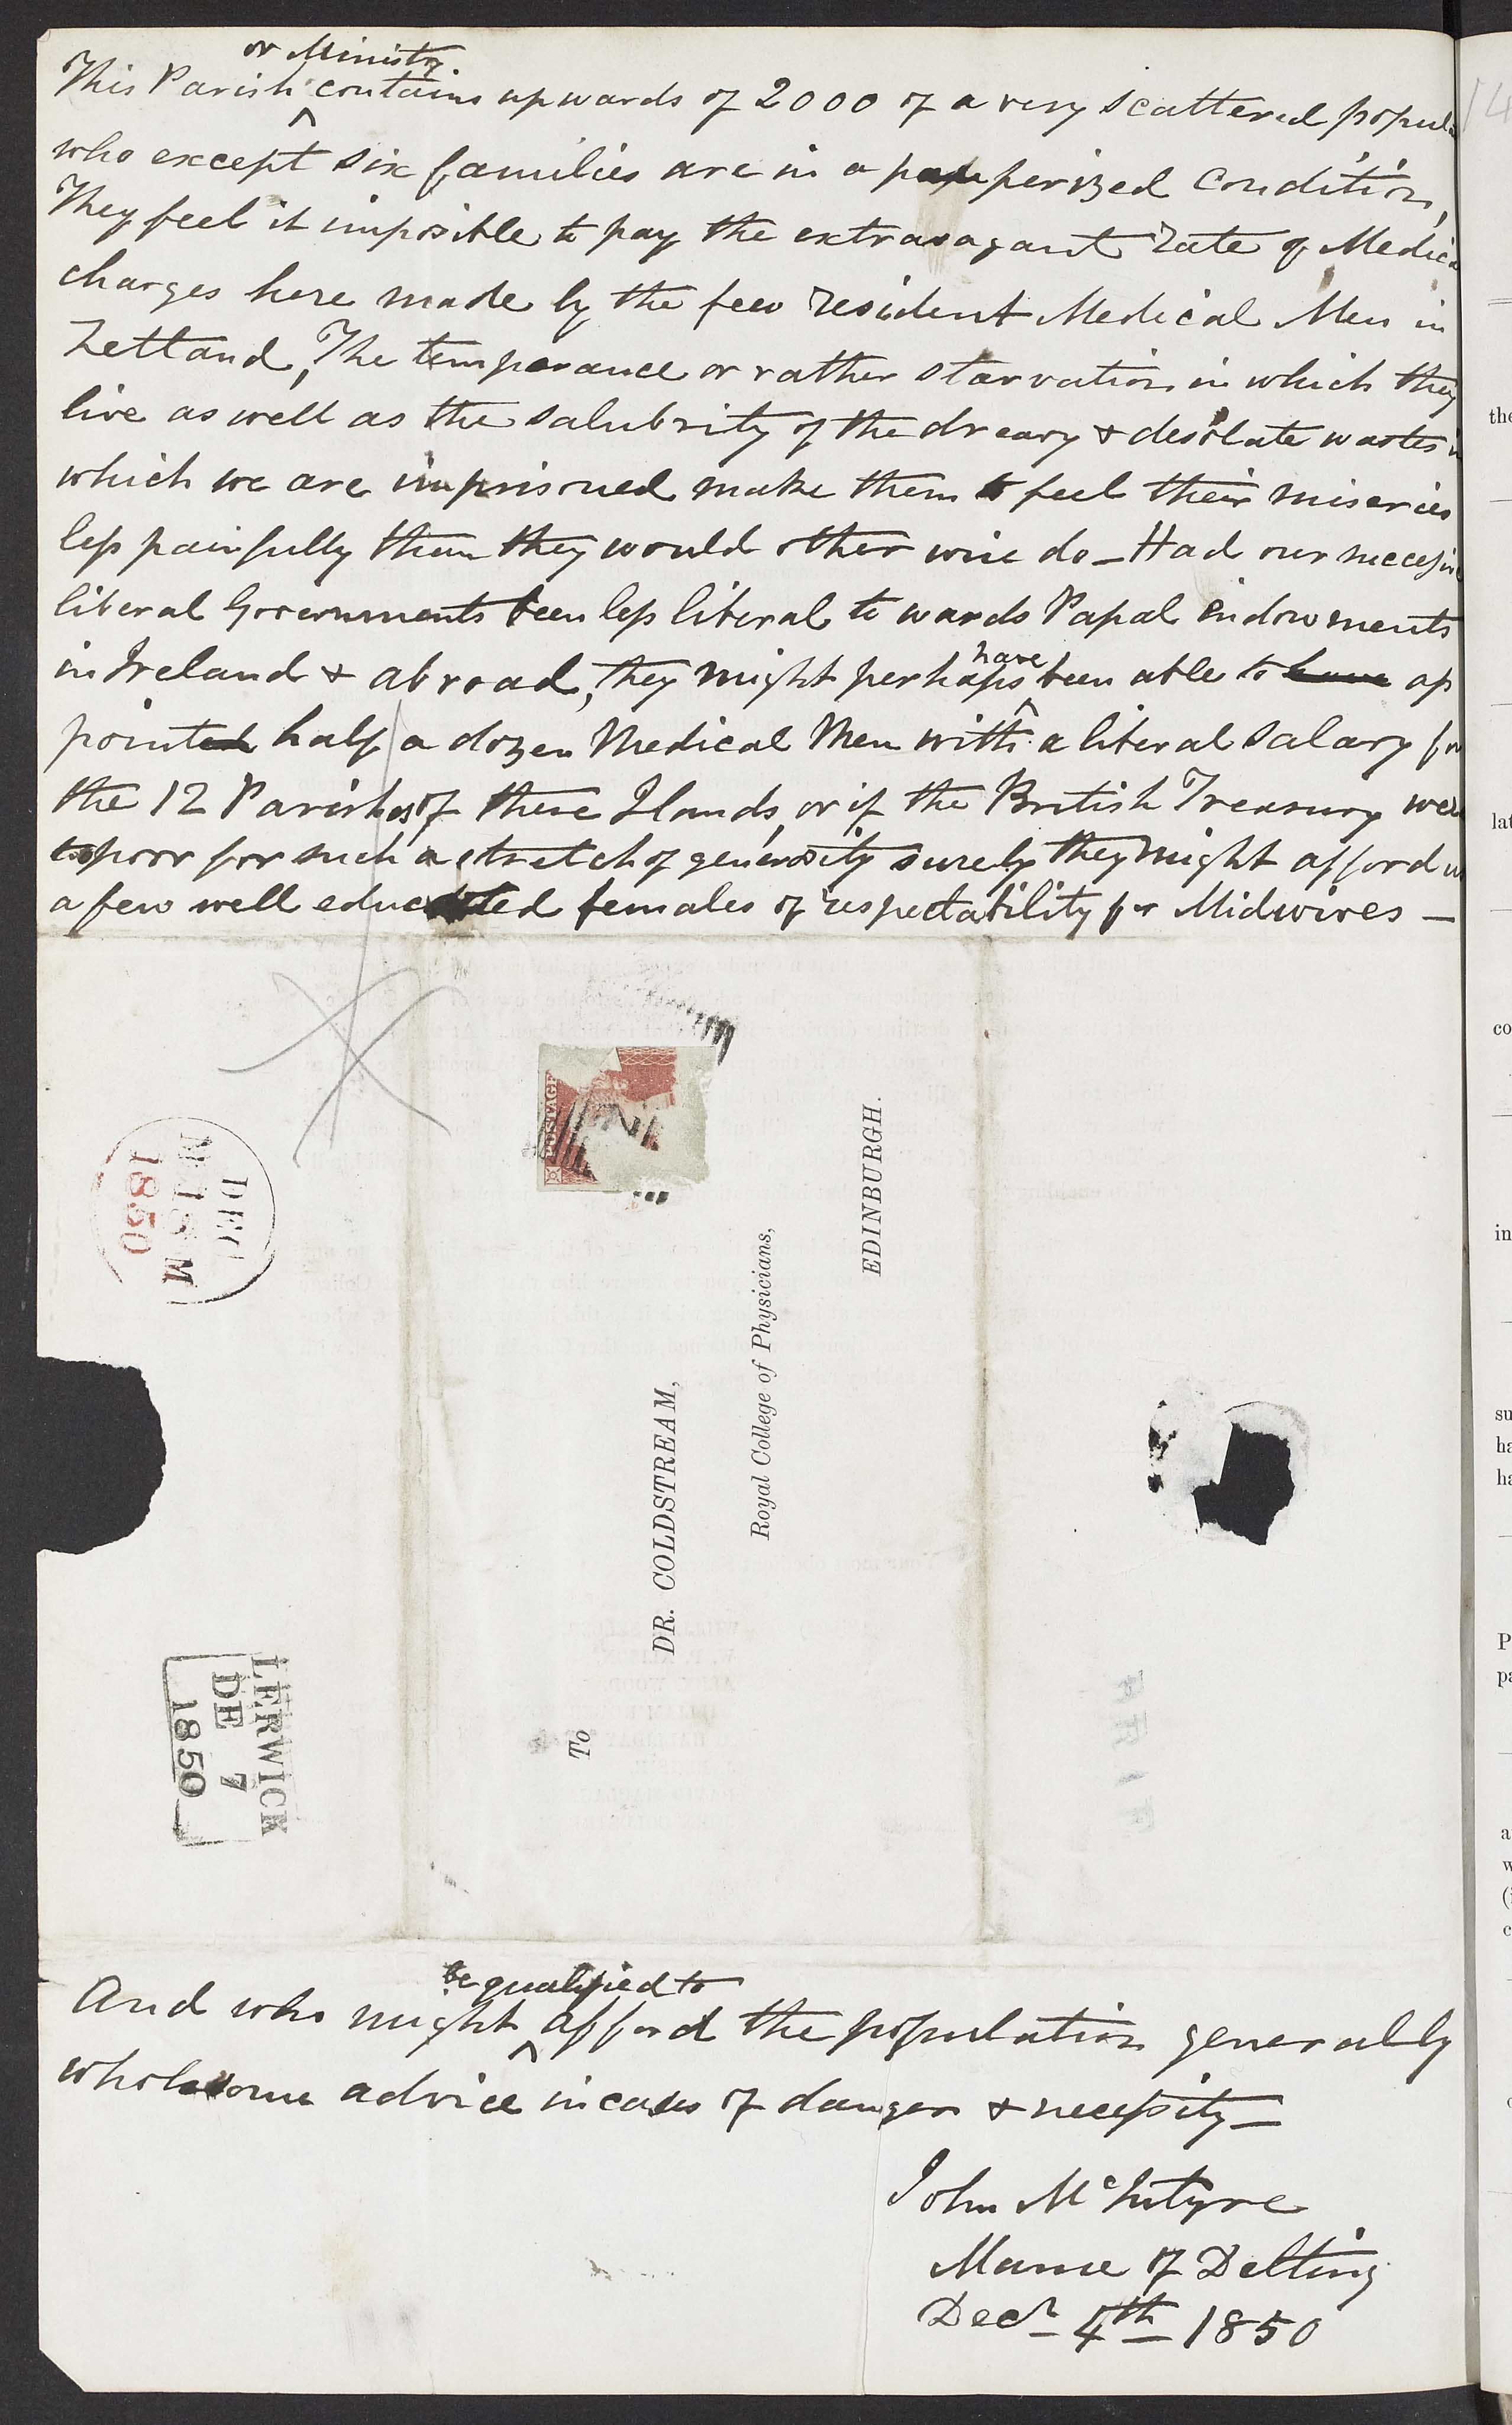 or Ministry
This Parish contains upwards of 2000 of a very scattered popula
who except six families are in a pauperized condition,
They feel it impossible to pay the extravagant rate of Medica
charges here made by the few resident Medical Men in
Zetland, The temperance or rather starvation in which they
live as well as the salubrity of the dreary & desolate wastes in
which we are imprisoned make them to feel their miseries
less painfully than they would other wise do — Had our successive
liberal Governments been less liberal to wards Papal endowments
have
in Ireland & abroad, they might perhaps been able to have ap
pointed half a dozen Medical Men with a liberal salary for
the 12 Parishes of these Ilands, or if the British Treasury were
too poor for such a stretch of generosity surely they might afford us
a few well educated females of respectability for Midwives —
POSTAGE
DEC
N 18 M
1850
To
DR. COLDSTREAM,
Royal College of Physicians,
EDINBURGH.
LERWICK
DE 7
1850
be qualified to
And who might afford the population generally
wholesome advice in cases of danger & necessity —
John McIntyre
Manse of Delting
Decr 4th 1850